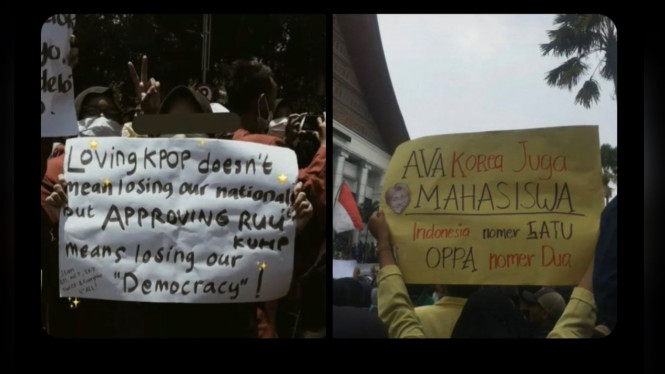 yo.
deld
LOVING KPOP doesn't
mean losing our national
but APPROVING RUU
KUHP
means losing our
"Democracy" !
AVA Korea Juga
MAHASISWA
Indonesia nomer SATU
OPPA nomer Dua